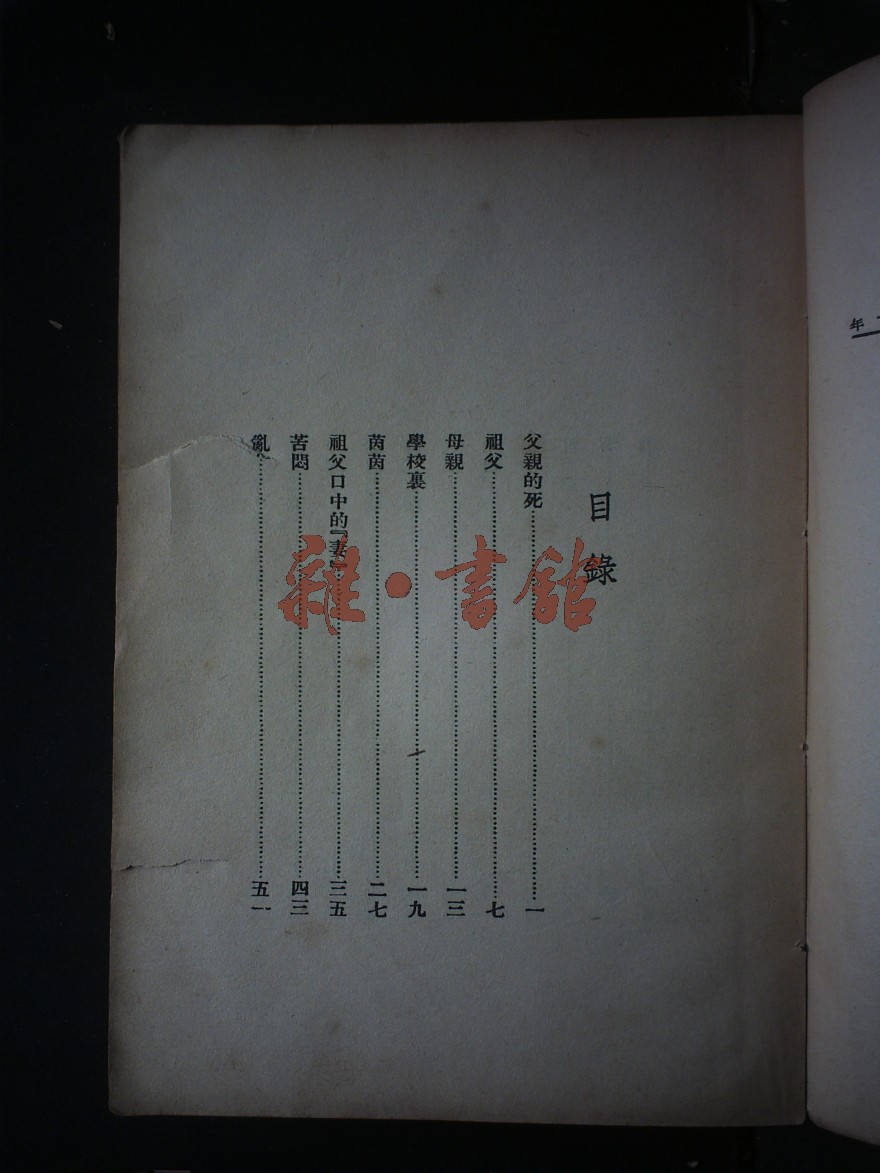 目錄
父親的死……一
祖父……七
母親……一三
學校裏……一九
茵茵……二七
祖父口中的『妻』……三五
苦悶……四三
亂……五一
雜·書館
年